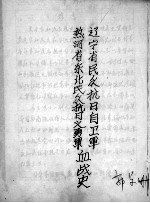 辽宁省民众抗日自卫軍
热河省东北民众抗日义勇軍血战史